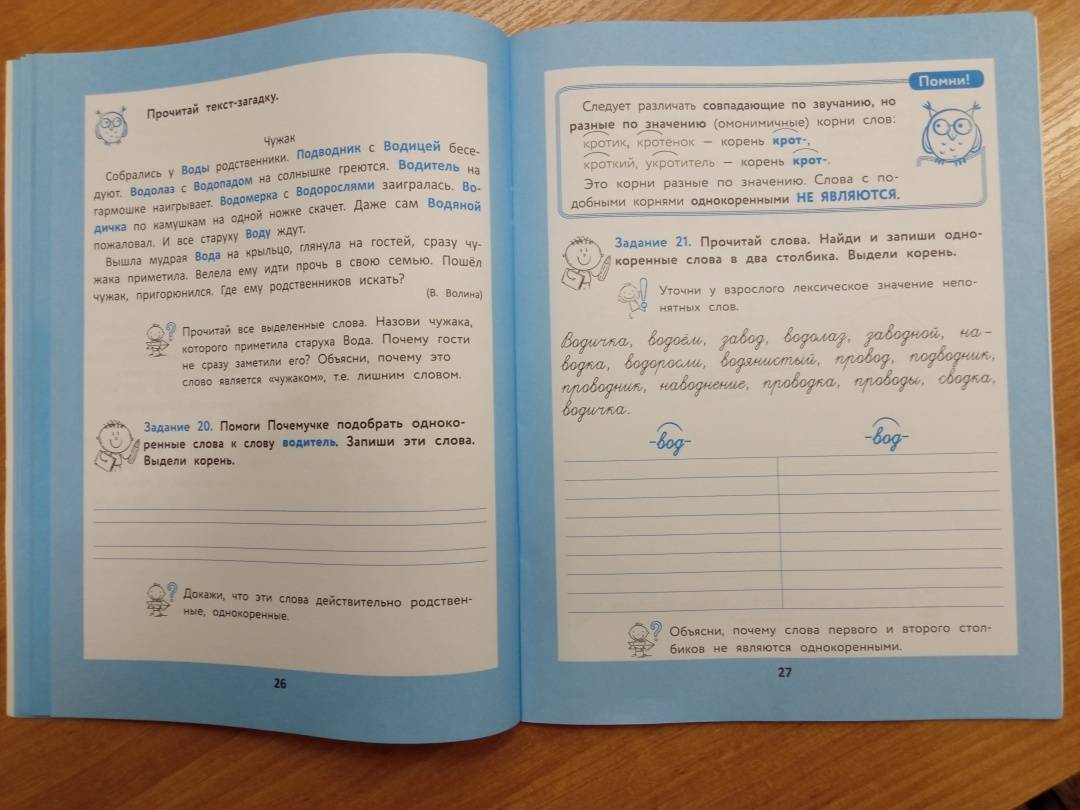 Прочитай текст-загадку.
Чужак
Собрались у Воды родственники. Подводник с Водицей бесе-
дуют. Водолаз с Водопадом на солнышке греются. Водитель на
гармошке наигрывает. Водомерка с Водорослями заигралась. Во-
дичка по камушкам на одной ножке скачет. Даже сам Водяной
пожаловал. И все старуху Воду ждут.
Вышла мудрая Вода на крыльцо, глянула на гостей, сразу чу-
жака приметила. Велела ему идти прочь в свою семью. Пошёл
чужак, пригорюнился. Где ему родственников искать?
(В. Волина)
Прочитай все выделенные слова. Назови чужака,
которого приметила старуха Вода. Почему гости
не сразу заметили его? Объясни, почему это
слово является «чужаком», т.е. лишним словом.
Задание 20. Помоги Почемучке подобрать одноко-
ренные слова к слову водитель. Запиши эти слова.
Выдели корень.
Докажи, что эти слова действительно родствен-
ные, однокоренные.
26
Помни!
Следует различать совпадающие по звучанию, но
разные по значению (омонимичные) корни слов:
кротик, кротёнок – корень крот-,
кроткий, укротитель – корень крот-.
Это корни разные по значению. Слова с по-
добными корнями однокоренными НЕ ЯВЛЯЮТСЯ.
Задание 21. Прочитай слова. Найди и запиши одно-
коренные слова в два столбика. Выдели корень.
Уточни у взрослого лексическое значение непо-
нятных слов.
Водичка, водоём, завод, водолаз, заводной, на-
водка, водоросли, водянистый, провод, подводник,
проводник, наводнение, проводка, проводы, сводка,
водичка.
-вод- -вод-
Объясни, почему слова первого и второго стол-
биков не являются однокоренными.
27